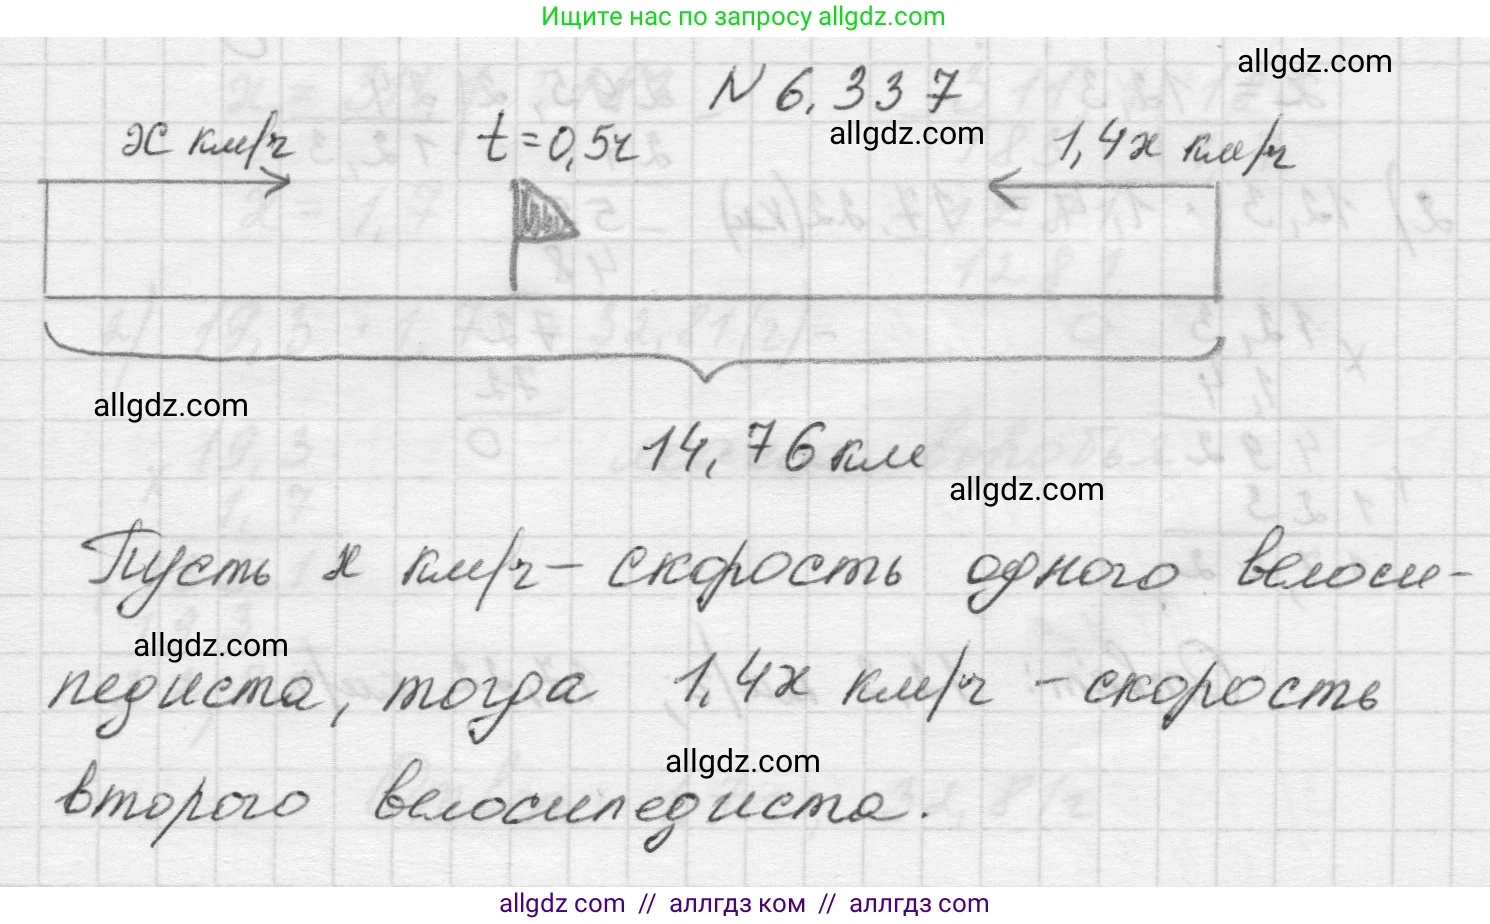 Ищите нас по запросу allgdz.com
allgdz.com
N 6.337
x км/ч
t=0,5ч
allgdz.com
1,4x км/ч
allgdz.com
14,76 км
allgdz.com
Пусть x км/ч – скорость одного велоси-
allgdz.com
педиста, тогда 1,4x км/ч – скорость
allgdz.com
второго велосипедиста.
allgdz com // аллгдз ком // аллгдз com